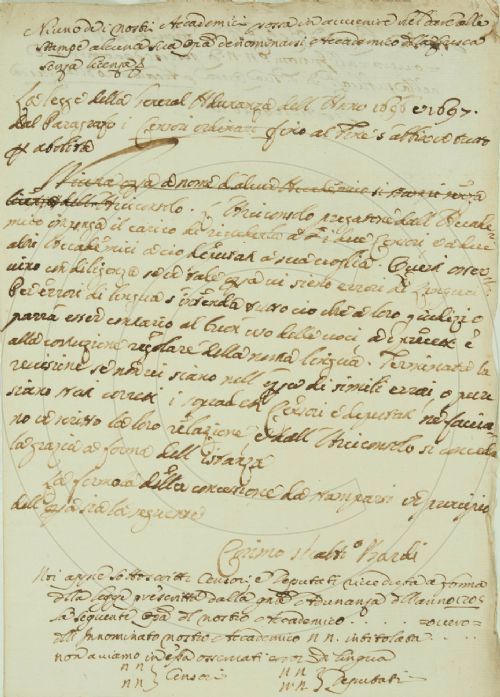 Niuno de i nostri Accademici possa in avvenire nel dare alle
stampe alcuna sua opera denominarsi Accademico della Crusca
senza licenza
La legge della General Adunanza dell' Anno 1696 e 1697.
dal Paragrafo i Censori ordinari fino al fine s'abbia e tutto
abolita
Stampa a nome d'alcun Accademico si stampi senza
dell' Arciconsolo. L'Arciconsolo pregatone dall' Accade-
mico commetta il carico di rivederla a i due Censori e a due
altri Accademici a ciò deputati a sua voglia. Questi osser-
vino con diligenza se in tale opera vi sieno errori di lingua.
Per errori di lingua s'intenda tutto ciò che a loro giudizio
parrà esser contrario al buon uso delle voci, a i precetti e
alla costruzione regolare della nostra lingua. Terminata la
revisione se non vi siano nell' opera di simili errori o pure
siano stati corretti i Censori e deputati ne faccia-
no in scritto la loro relazione e dall' Arciconsolo si conceda
la grazia a forma dell' istanza
La forma della concessione da stamparsi in principio
dell' opera sia la seguente
Noi appiè sottoscritti Censori, e Deputati a forma
della legge prescritta dalla Adunanza dell'anno 1705
la seguente opera del nostro Accademico . . . . ovvero
dell' Innominato nostro Accademico N N. intitolata . . . .
non aviamo in essa osservati errori di lingua
N N } Censori N N } Deputati
N N N. N